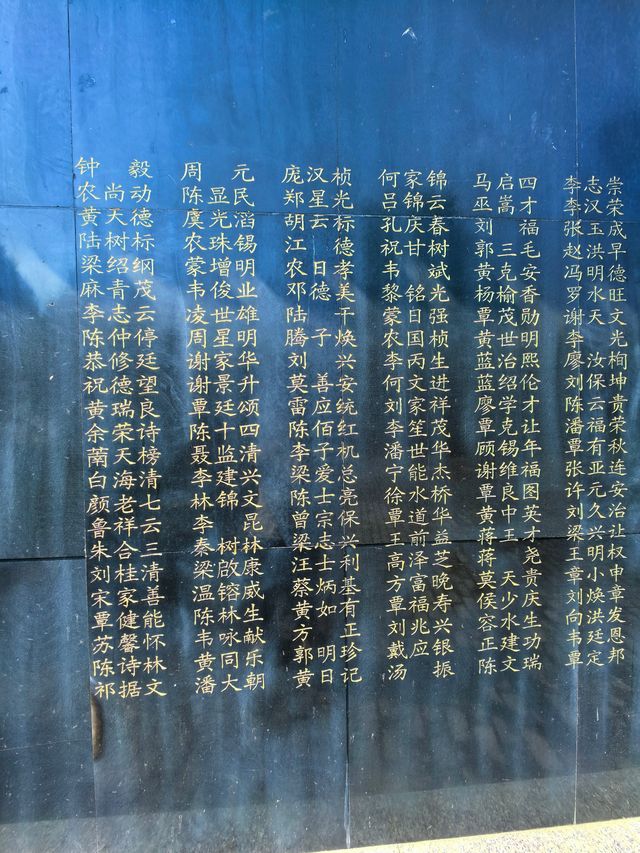 钟毅 周元 庞汉桢 何家锦 马启四 李志崇
农尚动 陈显民 郑星光 吕锦云 巫嵩才 李汉荣
黄天德 虞光滔 胡云标 孔庆春 刘福 张玉成
陆树标 农珠锡 江德 祝甘树 郭三毛 赵洪早
梁绍纲 蒙增明 农日孝 韦斌 黄克安 冯明德
麻青茂 韦俊业 邓德美 黎铭光 杨榆香 罗水旺
李志云 凌世雄 陆干 蒙日强 覃茂勋 谢天文
陈仲停 周星明 腾子焕 农国桢 黄世明 李光
恭修廷 谢家华 刘兴 李丙生 蓝治熙 廖汝栒
祝德望 谢景升 莫善安 何文进 蓝绍伦 刘保坤
黄瑞良 覃廷颂 雷应统 刘家祥 廖学才 陈云贵
余荣诗 陈十四 陈佰红 李笙茂 覃克让 潘福荣
天榜 聂监清 李子机 潘世华 顾锡年 覃有秋
白海清 李建兴 梁爱总 宁能杰 谢维福 张亚连
颜老七 林锦文 陈士亮 徐水桥 覃良图 许元安
鲁祥云 李昆 曾宗保 覃道华 黄中英 刘久治
朱合三 秦树林 梁志兴 王前益 蒋王才 梁兴让
刘桂清 梁啟康 汪士利 高泽芝 蒋尧 王明权
宋家善 温镕威 蔡炳基 方富晚 莫天贵 章小申
覃健能 陈林生 黄如有 覃福寿 侯少庆 刘焕章
苏馨怀 韦咏献 方正 刘兆兴 容水生 向洪发
陈诗林 黄同乐 郭明珍 戴应银 正建功 韦廷恩
祁据文 潘大朝 黄日记 汤振 陈文瑞 覃定邦